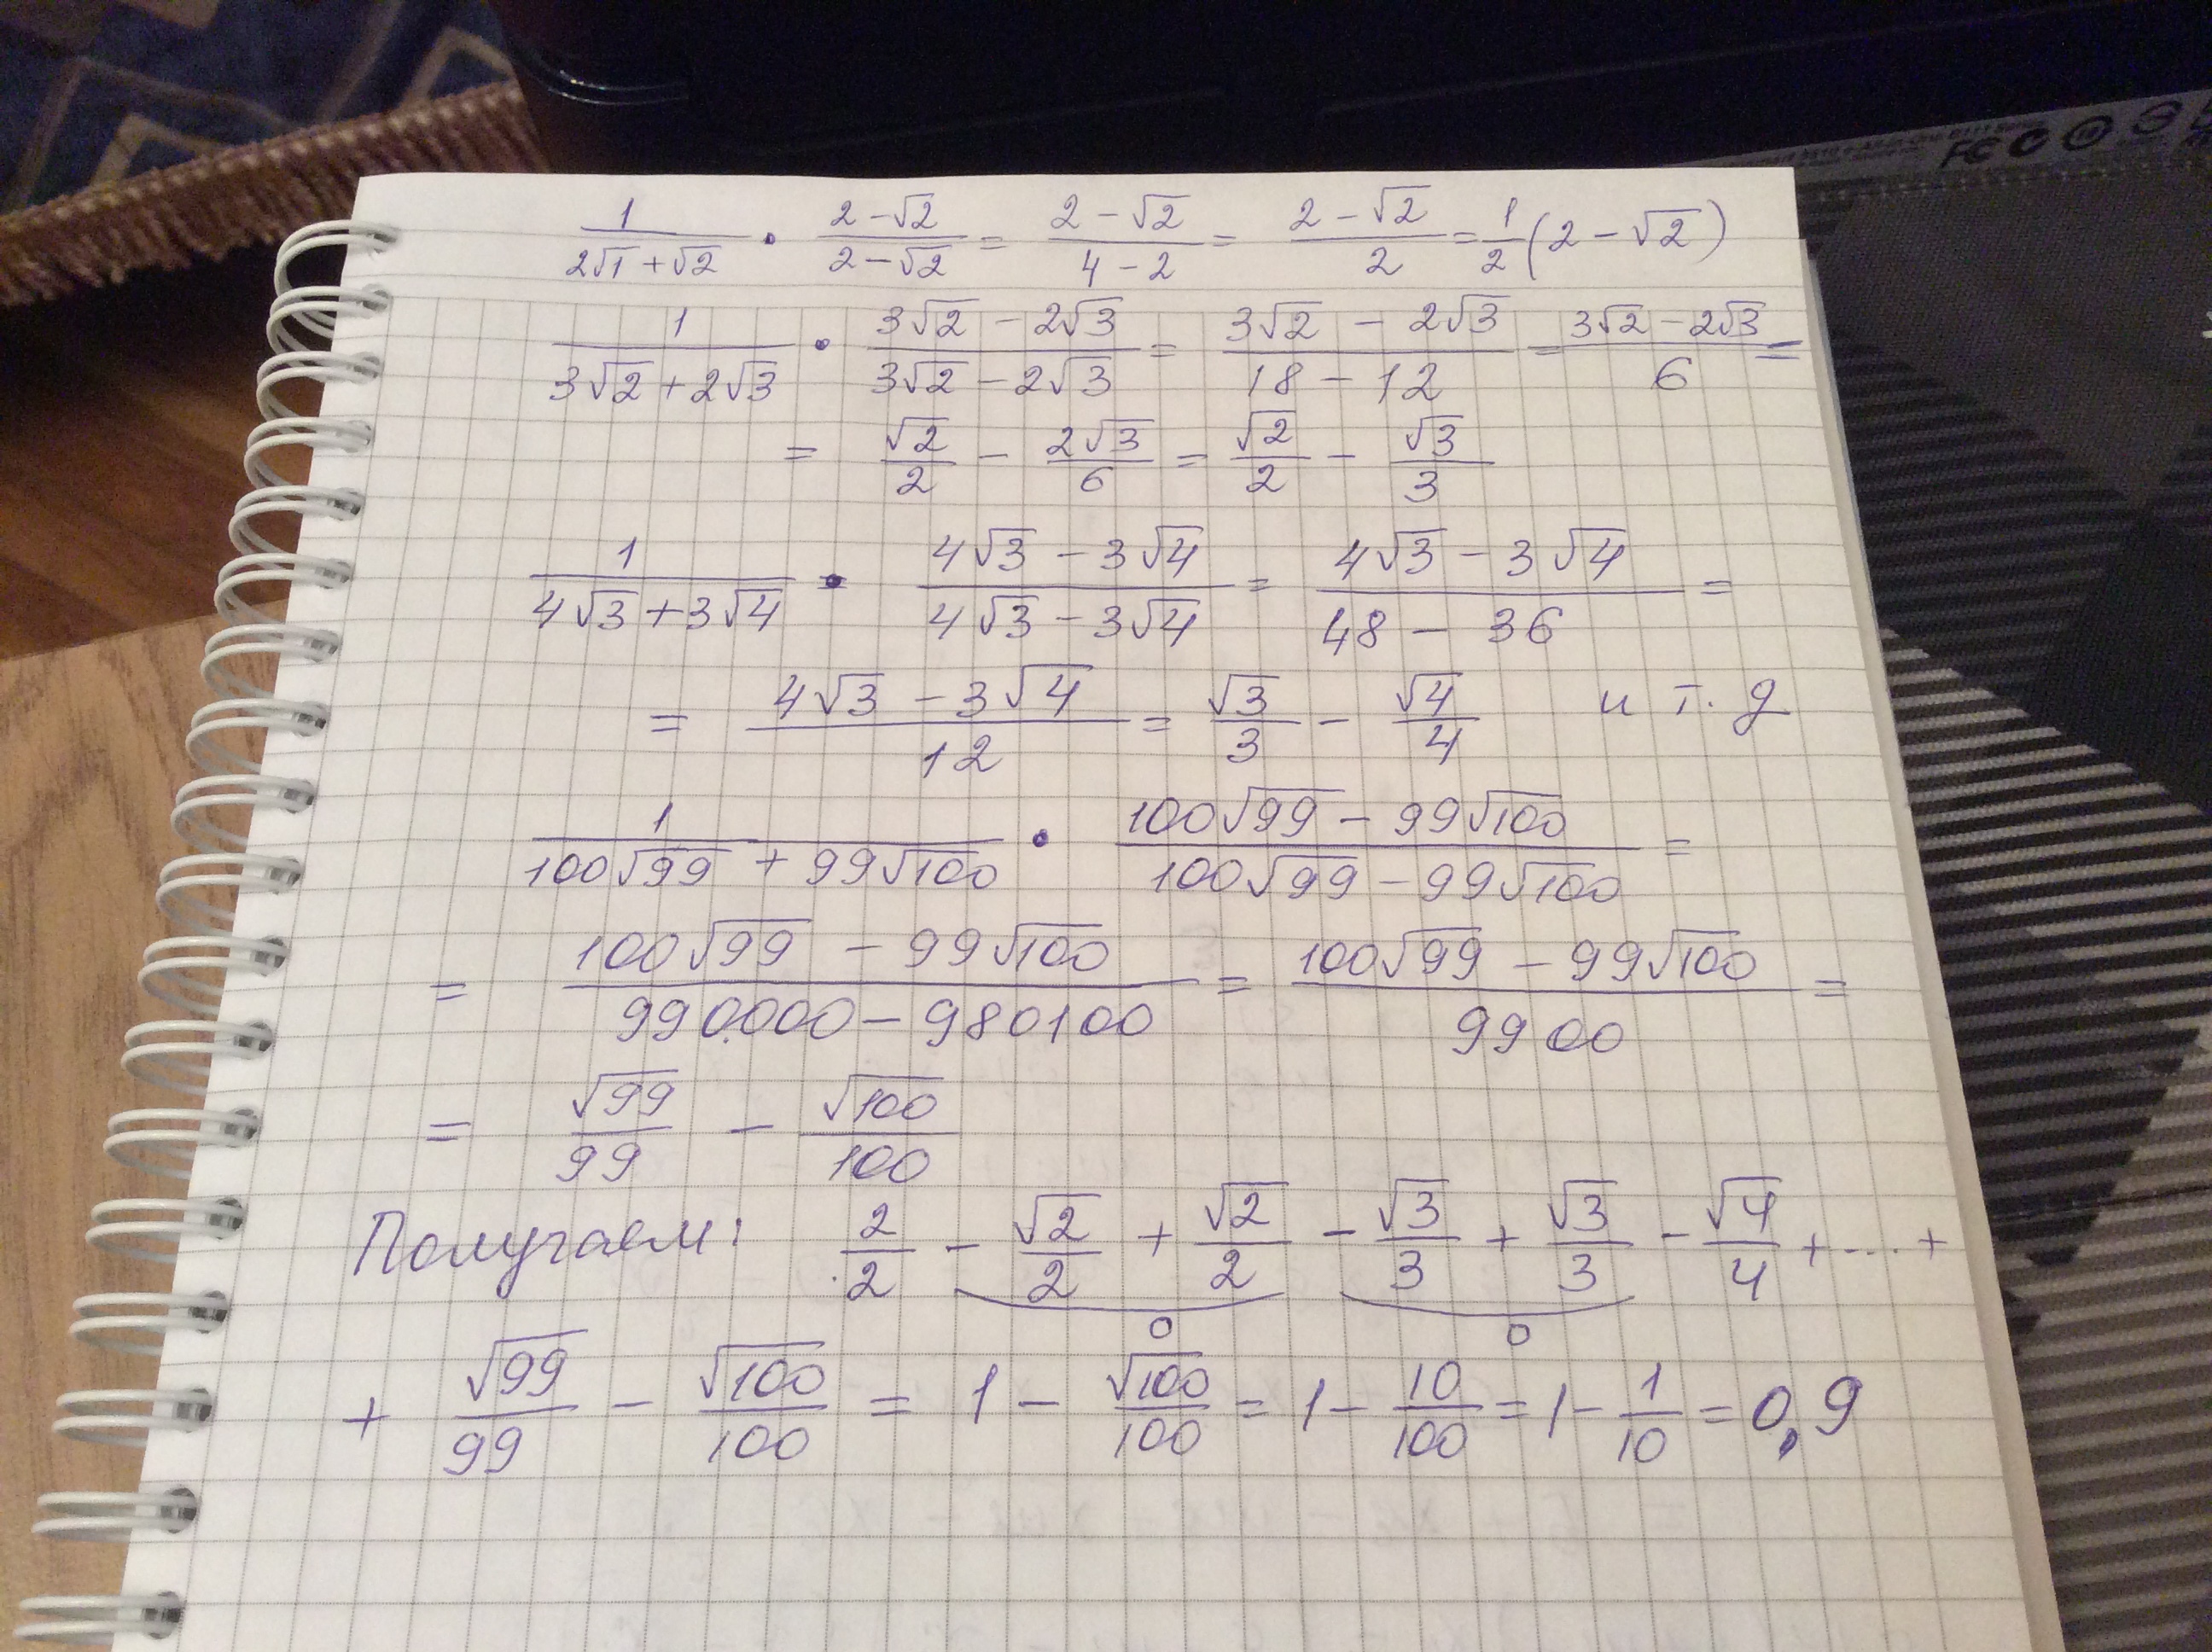 1/(2√1+√2) · (2-√2)/(2-√2) = (2-√2)/(4-2) = (2-√2)/2 = 1/2(2-√2)
1/(3√2+2√3) · (3√2-2√3)/(3√2-2√3) = (3√2-2√3)/(18-12) = (3√2-2√3)/6 =
= √2/2 - 2√3/6 = √2/2 - √3/3
1/(4√3+3√4) · (4√3-3√4)/(4√3-3√4) = (4√3-3√4)/(48-36) =
= (4√3-3√4)/12 = √3/3 - √4/4 и т. д
1/(100√99+99√100) · (100√99-99√100)/(100√99-99√100) =
= (100√99-99√100)/(990000-980100) = (100√99-99√100)/9900 =
= √99/99 - √100/100
Получаем: 2/2 - √2/2 + √2/2 - √3/3 + √3/3 - √4/4 + .... +
0 0
+ √99/99 - √100/100 = 1 - √100/100 = 1 - 10/100 = 1 - 1/10 = 0,9
FC